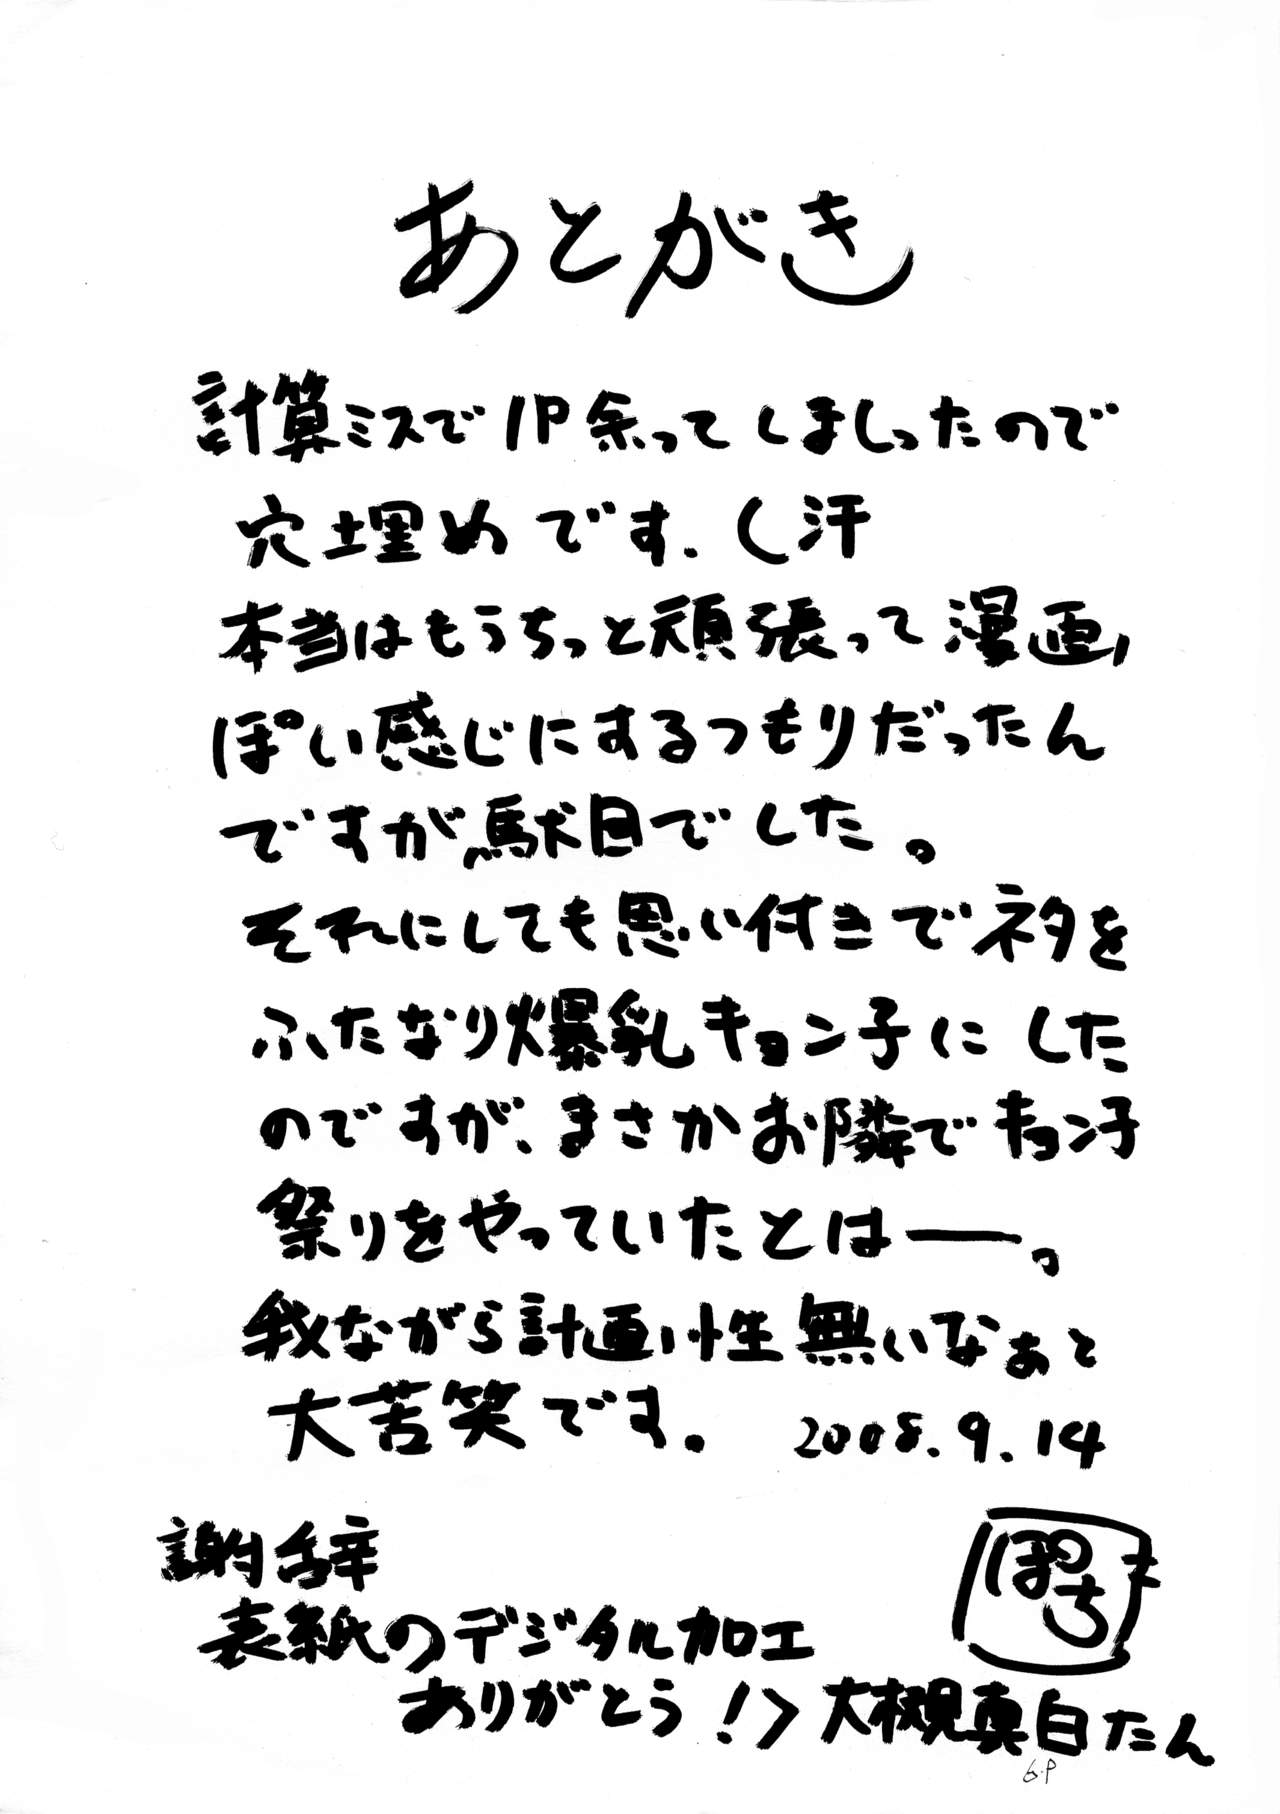 あとがき
計算ミスで1P余ってしまったので
穴埋めです.(汗
本当はもうちっと頑張って漫画っ
ぽい感じにするつもりだったん
ですが、駄目でした。
それにしても思い付きでネタを
ふたなり爆乳キョン子にした
のですが、まさかお隣でキョン子
祭りをやっていたとはー。
我ながら計画性無いなぁと
大苦笑です。 2008.9.14
謝辞
ぽち
表紙のデジタル加工
ありがとう!>大槻真白たん
6.P